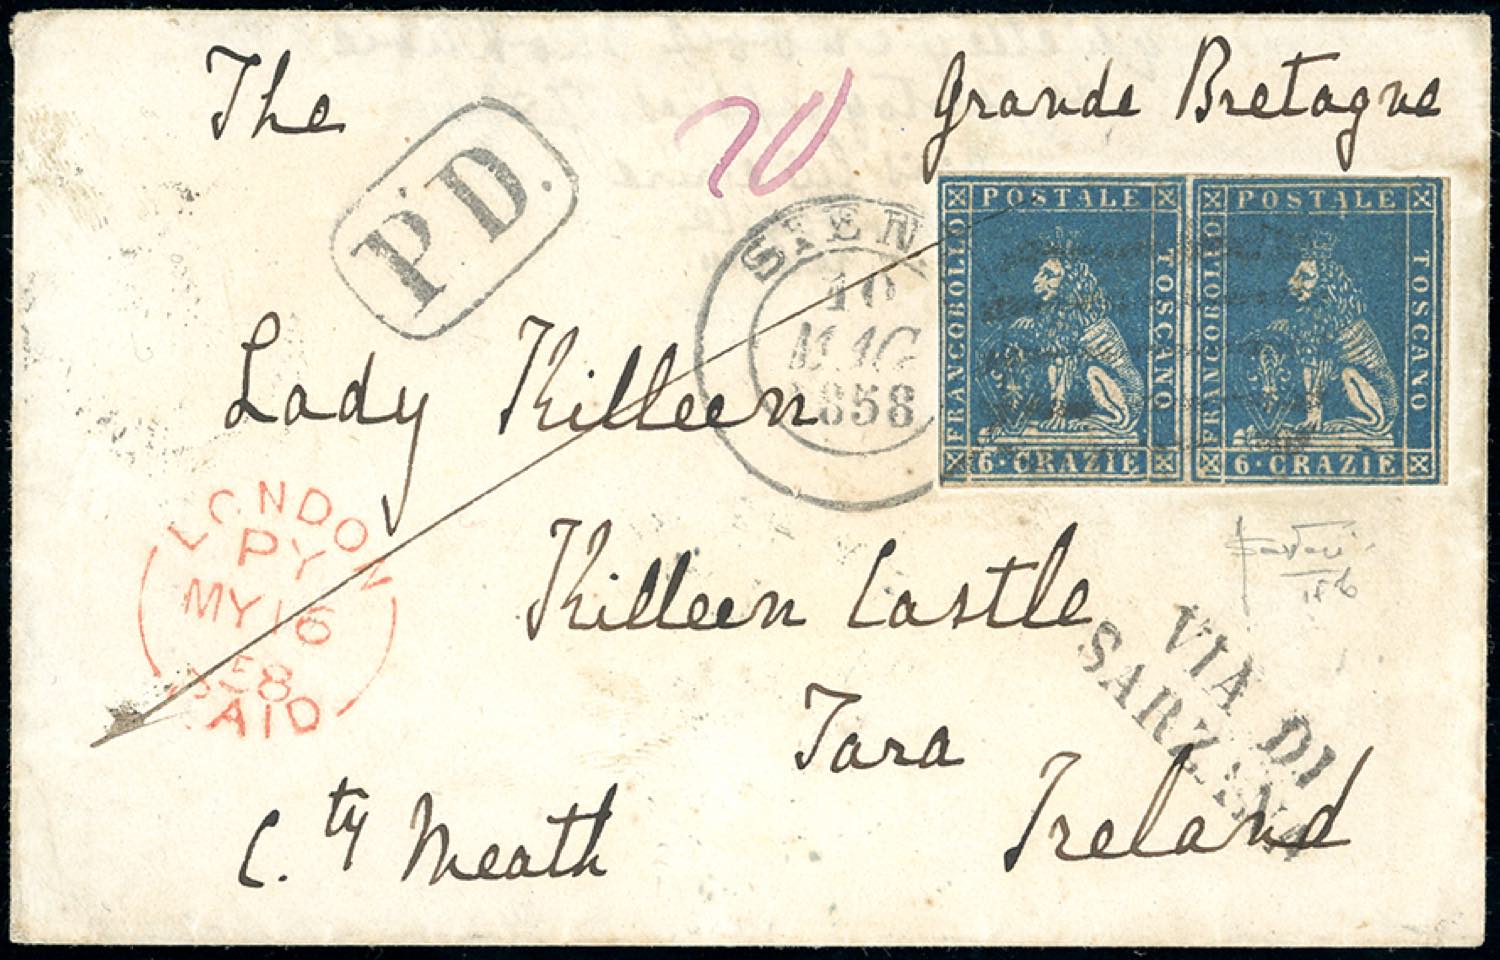 The
Grande Bretagne
P.D.
20
SIEN
10
MAG
1858
POSTALE
FRANCOBOLLO
TOSCANO
6·CRAZIE
POSTALE
FRANCOBOLLO
TOSCANO
6·CRAZIE
Lady Killeen
LONDON
PY
MY 16
58
PAID
Killeen Castle
VIA DI
SARZANA
Tara
C.ty Meath
Ireland